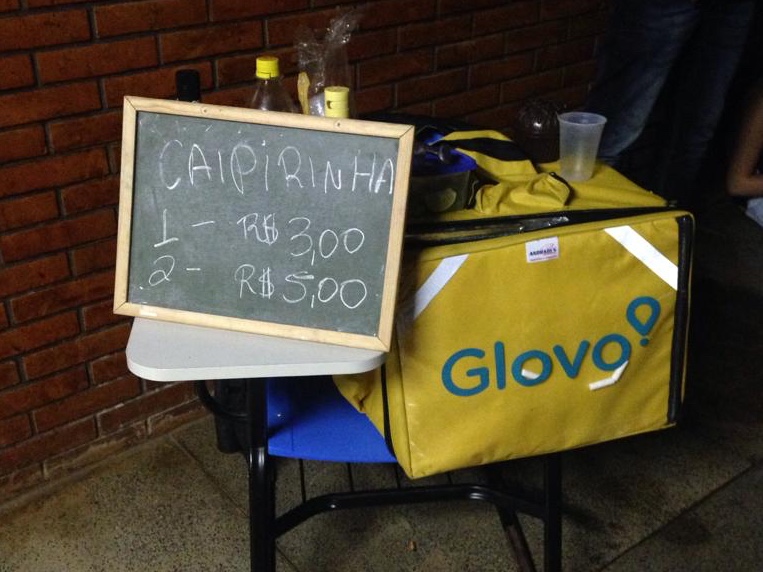 CAIPIRINHA
1 - R$ 3,00
2 - R$ 5,00
Glovo